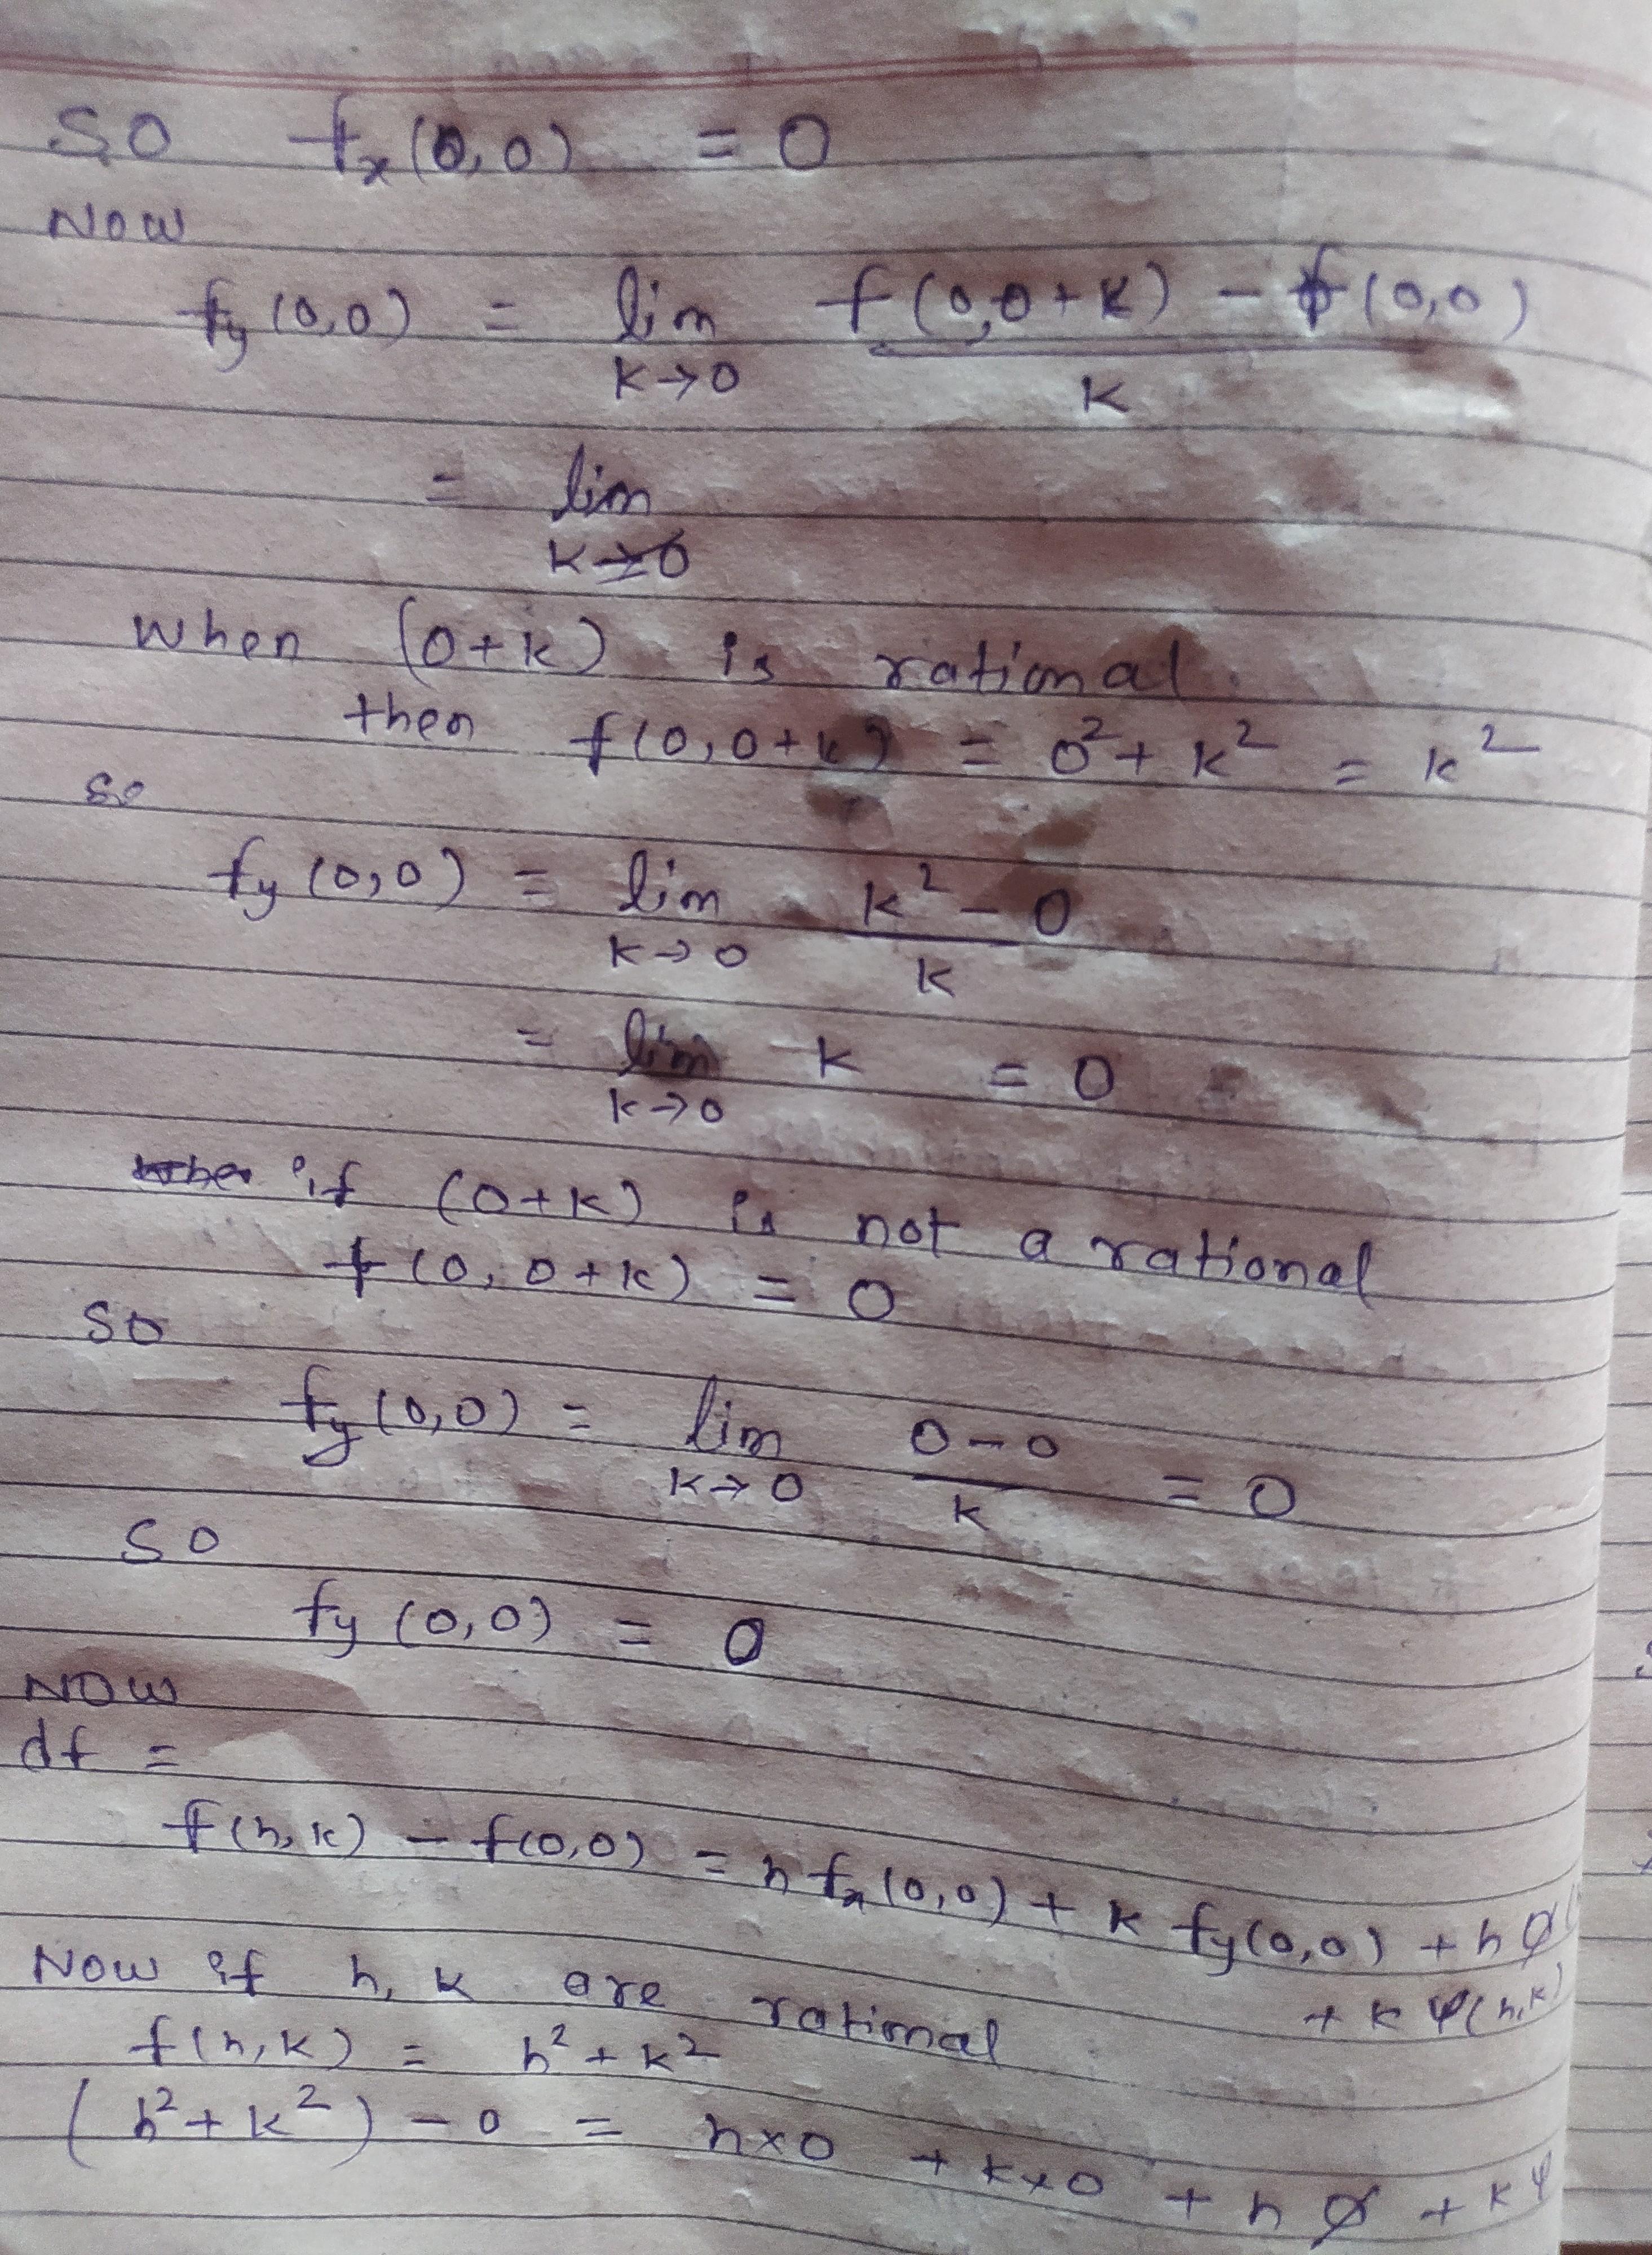 SO fx(0,0) = 0
Now
fy(0,0) = lim f(0,0+k) - f(0,0)
k→0 k
= lim
k→0
when (0+k) is rational.
then f(0,0+k) = 0² + k² = k²
so
fy(0,0) = lim k² - 0
k→0 k
= lim k = 0
k→0
if (0+k) is not a rational
f(0,0+k) = 0
SO
fy(0,0) = lim 0-0 = 0
k→0 k
SO
fy(0,0) = 0
NOW
df =
f(h,k) - f(0,0) = h fx(0,0) + k fy(0,0) + h ϕ(
+ k ψ(h,k)
Now if h, k are rational
f(h,k) = h² + k²
(h² + k²) - 0 = h×0 + k×0 + h ϕ + k ψ